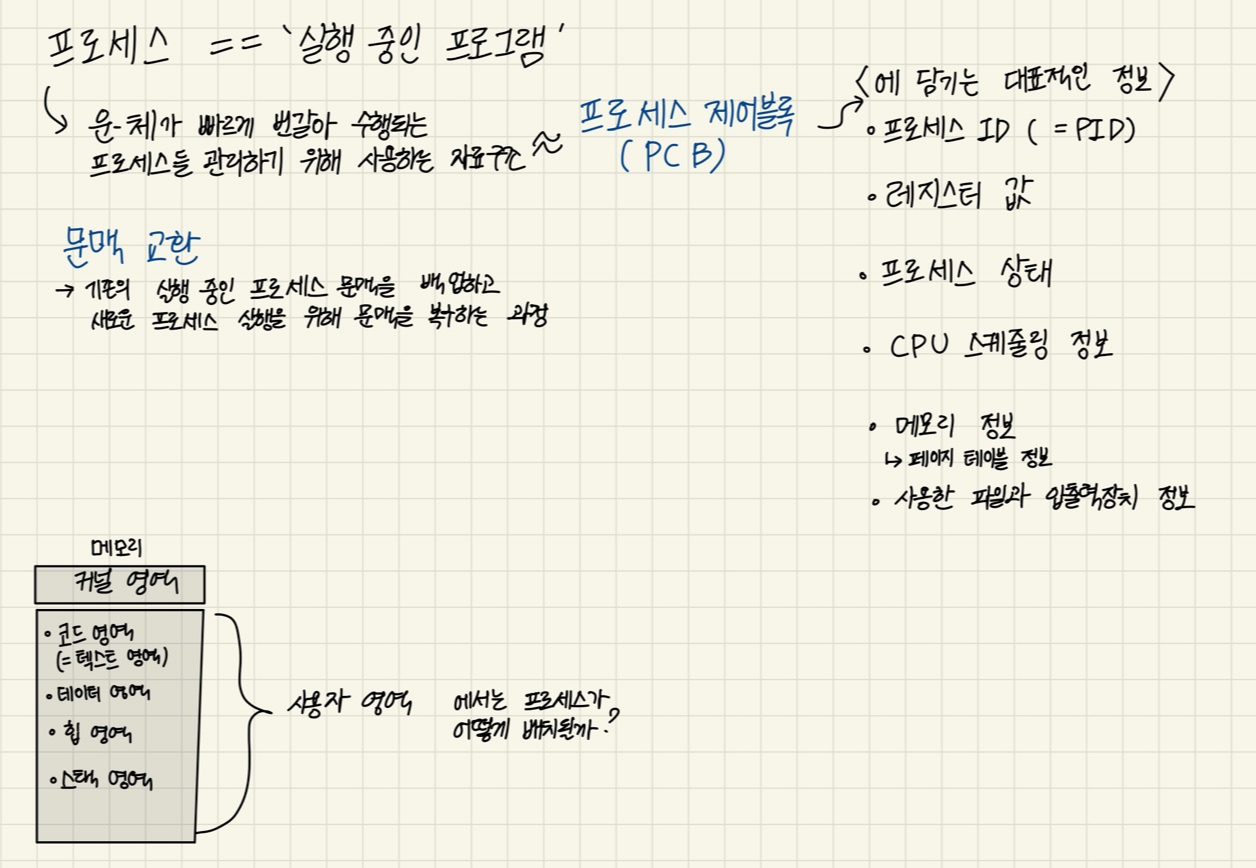 프로세스 == '실행 중인 프로그램'
운-체가 빠르게 번갈아 수행되는
프로세스들 관리하기 위해 사용하는 자료구조 ≈
프로세스 제어블록
(PCB)
<에 담기는 대표적인 정보>
• 프로세스 ID ( = PID)
• 레지스터 값
• 프로세스 상태
• CPU 스케줄링 정보
• 메모리 정보
↳ 페이지 테이블 정보
• 사용한 파일과 입출력장치 정보
문맥 교환
→ 기존의 실행 중인 프로세스 문맥을 백업하고
새로운 프로세스 실행을 위해 문맥을 복구하는 과정
메모리
커널 영역
• 코드 영역
(= 텍스트 영역)
• 데이터 영역
• 힙 영역
• 스택 영역
사용자 영역 에서는 프로세스가
어떻게 배치될까?